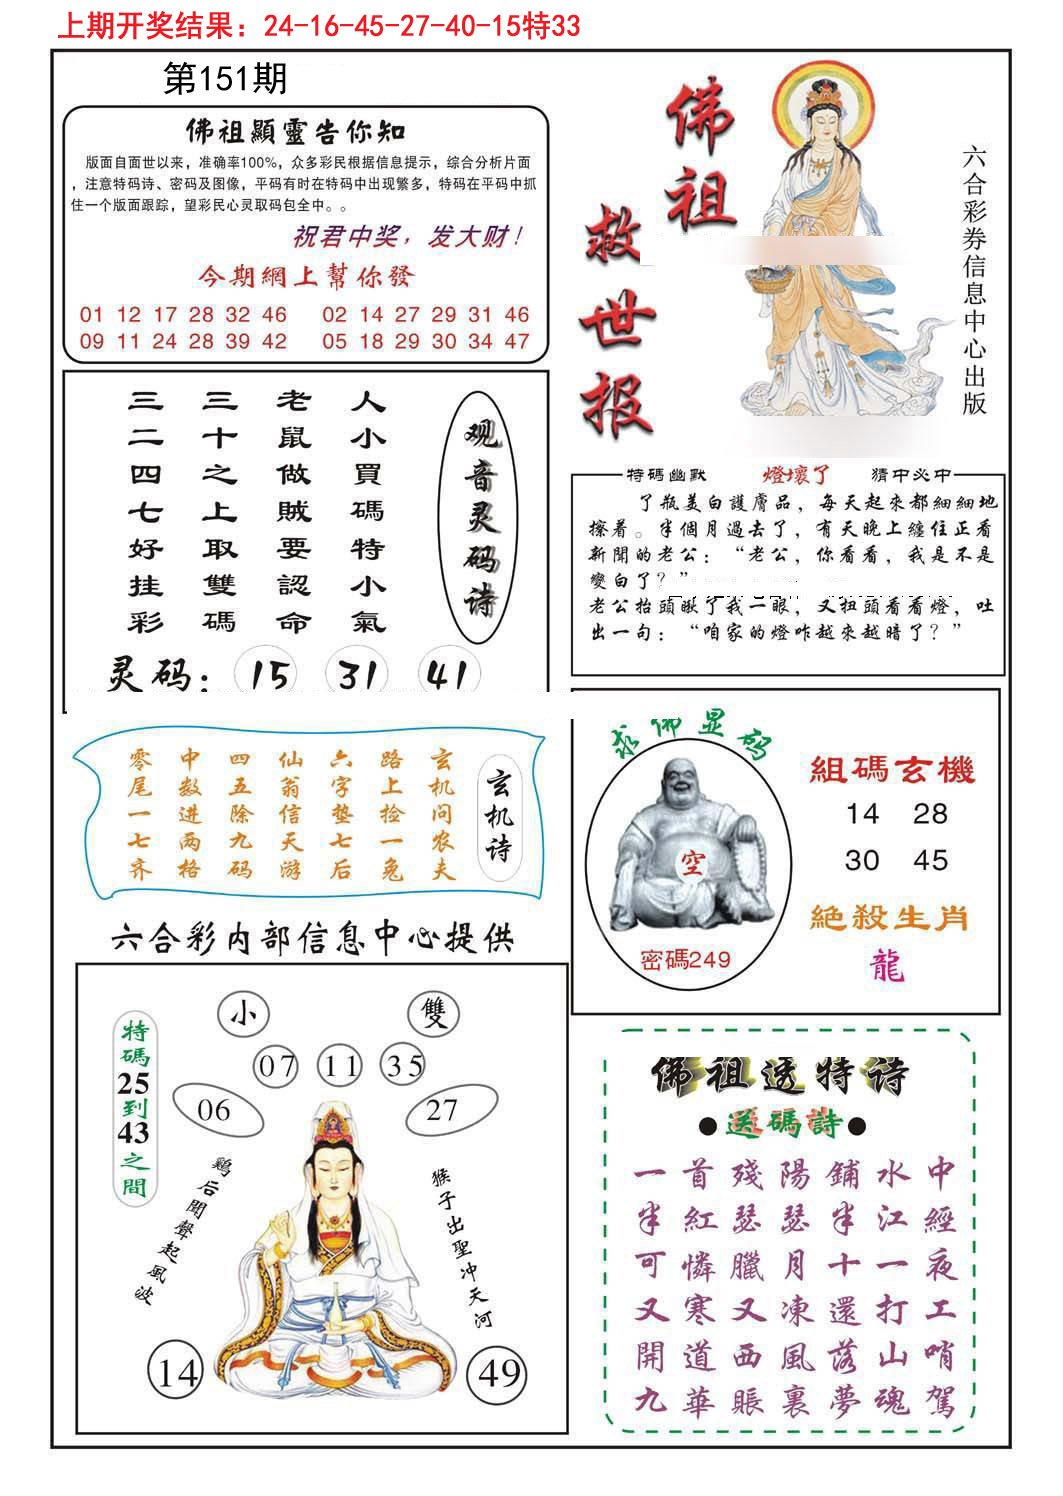 上期开奖结果：24-16-45-27-40-15特33
第151期
佛祖顯靈告你知
版面自面世以来，准确率100%，众多彩民根据信息提示，综合分析片面
，注意特码诗、密码及图像，平码有时在特码中出现繁多，特码在平码中抓
住一个版面跟踪，望彩民心灵取码包全中。。
祝君中奖，发大财！
今期網上幫你發
01 12 17 28 32 46 02 14 27 29 31 46
09 11 24 28 39 42 05 18 29 30 34 47
佛祖
救世报
六合彩券信息中心出版
观音灵码诗
人小買碼特小氣
老鼠做贼要認命
三十之上取雙碼
三二四七好挂彩
灵码：15 31 41
特碼幽默 燈壞了 猜中必中
了瓶美白護膚品，每天起來都細細地
擦着。半個月過去了，有天晚上纏住正看
新聞的老公：“老公，你看看，我是不是
變白了？”
老公抬頭瞅了我一眼，又扭頭看看燈，吐
出一句：“咱家的燈咋越來越暗了？”
玄机诗
玄机问农夫
路上捡一兔
六字垫七后
仙翁信天游
四五除九码
中数进两格
零尾一七齐
求佛显码
空
密碼249
組碼玄機
14 28
30 45
絕殺生肖
龍
六合彩内部信息中心提供
特碼25到43之間
小 雙
07 11 35
06 27
鷄后聞聲起風波
猴子出聖冲天河
14 49
佛祖透特诗
●送碼詩●
一首殘陽鋪水中
半紅瑟瑟半江經
可憐臘月十一夜
又寒又凍還打工
開道西風落山哨
九華賬裏夢魂駕